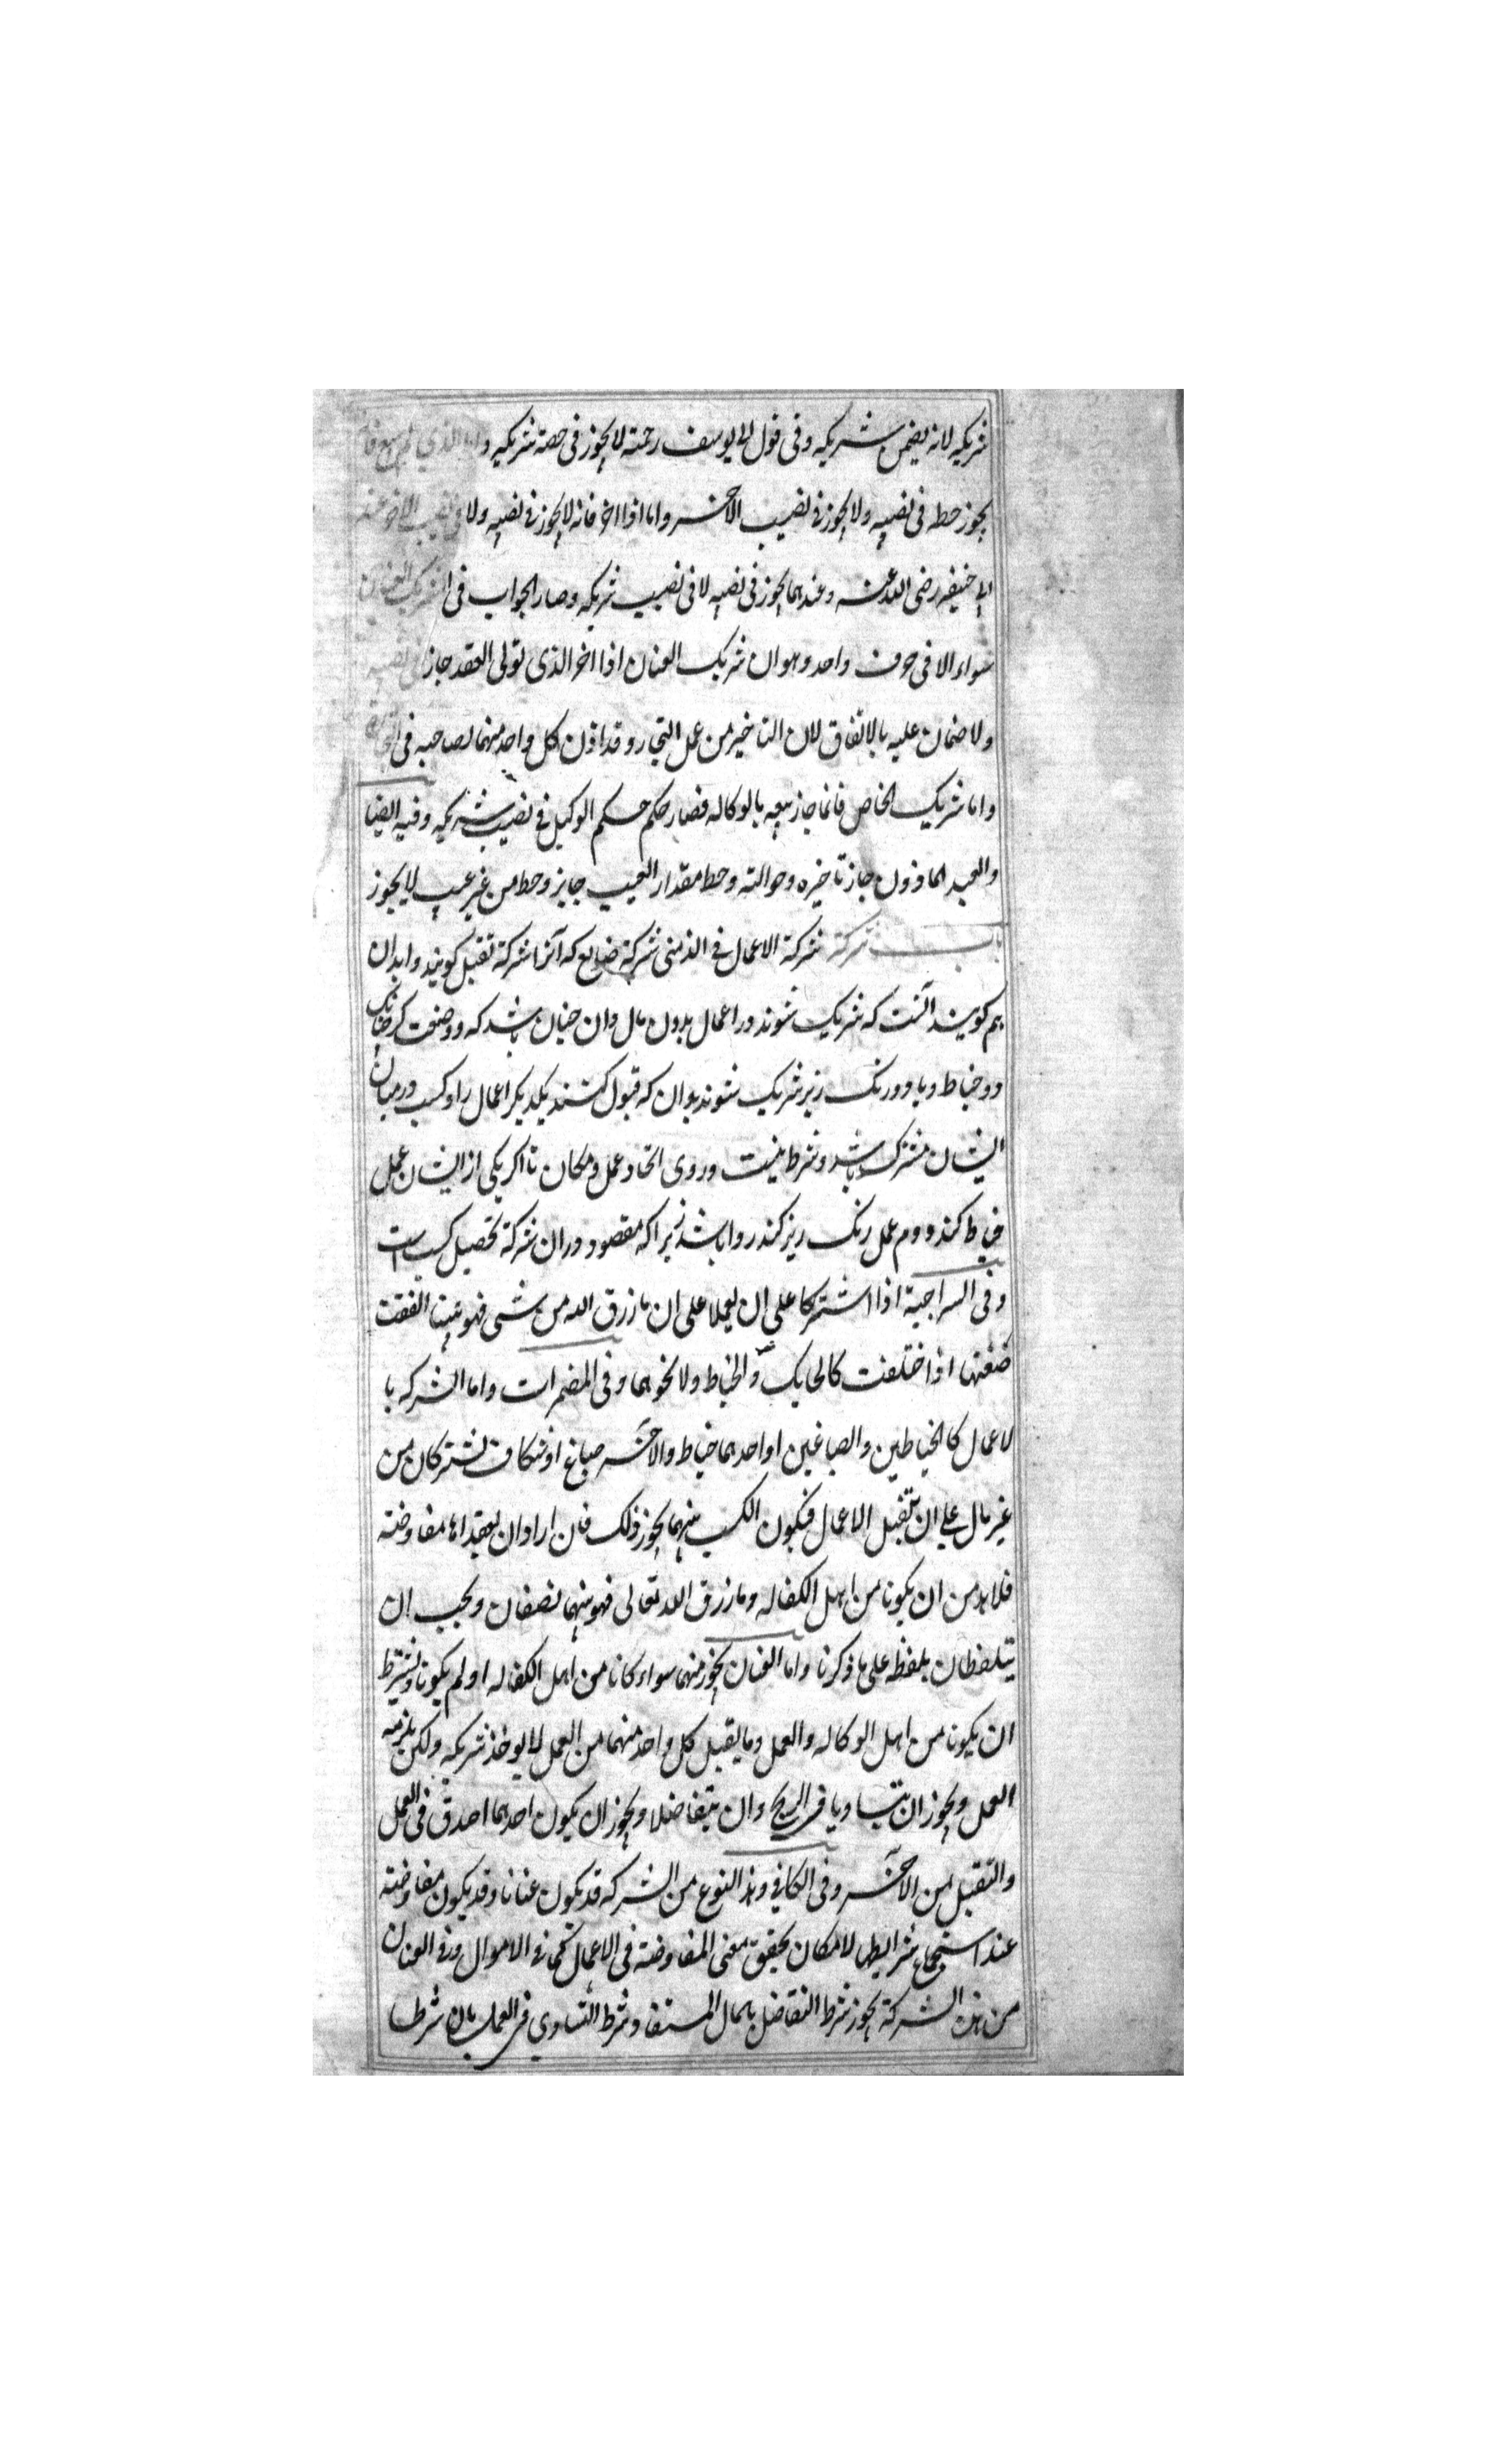 شریکه لانه یضمن شریکه وفی قول ابی یوسف رحمته لا یجوز فی حصة شریکه واما الذی لم یبع فانه
یجوز حطه فی نصیبه ولا یجوز فی نصیب الآخر واما اذا اخر فانه لا یجوز فی نصیبه ولا فی نصیب الآخر عند
ابی حنیفه رضی الله عنه وعندهما یجوز فی نصیبه لا فی نصیب شریکه وصار الجواب فی الشریک العنان
سواء الا فی حرف واحد وهو ان شریک العنان اذا اخر الذی تولی العقد جاز فی نصیبه
ولا ضمان علیه بالاتفاق لان التاخیر من عمل التجار وقد اذن کل واحد منهما لصاحبه فی
واما شریک الخاص فانما جاز بیعه بالوکاله فصار حکم حکم الوکیل فی نصیب شریکه وفیه ایضا
والعبد الماذون جاز تاخیره وحوالته وحط مقدار العیب جایز وحط من غیر عیب لا یجوز
باب شرکة شرکة الاعمال فی الذمنی شرکة ضایع که آنرا شرکة تقبل کویند وابدان
هم کویند آنست که شریک شوند در اعمال بدون مال وان چنان باشد که دو صنعت کر چنانک
دو خیاط ویا دو رنک ریز شریک شوند بدان که قبول کنند یکدیکر اعمال را وکسب درمیان
ایشان مشترک باشد وشرط نیست دروی اتحاد عمل ومکان تا اکر یکی از ایشان عمل
خیاط کند ودوم عمل رنک ریز کند روا باشد زیرا که مقصود دران شرکة تحصیل کسب است
وفی السراجیة اذا اشترکا علی ان یعملا علی ان ما رزق الله من شی فهو بیننا اتفقت
صنعتها اذا ختلفت کالحایک والخیاط ولا نحوهما وفی المضمرات واما الشرکه با
لاعمال کالخیاطین والصباغین او احدهما خیاط والآخر صباغ او شکاف یشترکان من
غیر مال علی ان یتقبل الاعمال فیکون الکسب بینهما یجوز ذلک فان ارادا ان یعقداها مفاوضته
فلا بد من ان یکونا من اهل الکفاله وما رزق الله تعالی فهو بینهما نصفان ویجب ان
یتلفظان بلفظ علی ما ذکرنا واما العنان یجوز منهما سواء کانا من اهل الکفاله او لم یکونا ویشترط
ان یکونا من اهل الوکاله والعمل وما یقبل کل واحد منهما من العمل لا یوخذ شریکه ولکن یلزمه
العمل ویجوز ان یتساویا فی الربح وان یتفاضلا ویجوز ان یکون احدهما احدق فی العمل
والتقبل من الآخر وفی الکافی وهذا النوع من الشرکه قد یکون عنانا وقد یکون مفاوضته
عند استجماع شرایطها لامکان یحقیق معنی المفاوضته فی الاعمال کما فی الاموال وفی العنان
من هذه الشرکة یجوز شرط التفاضل بالمال المستفاد وشرط التساوی فی العمل بان شرطا